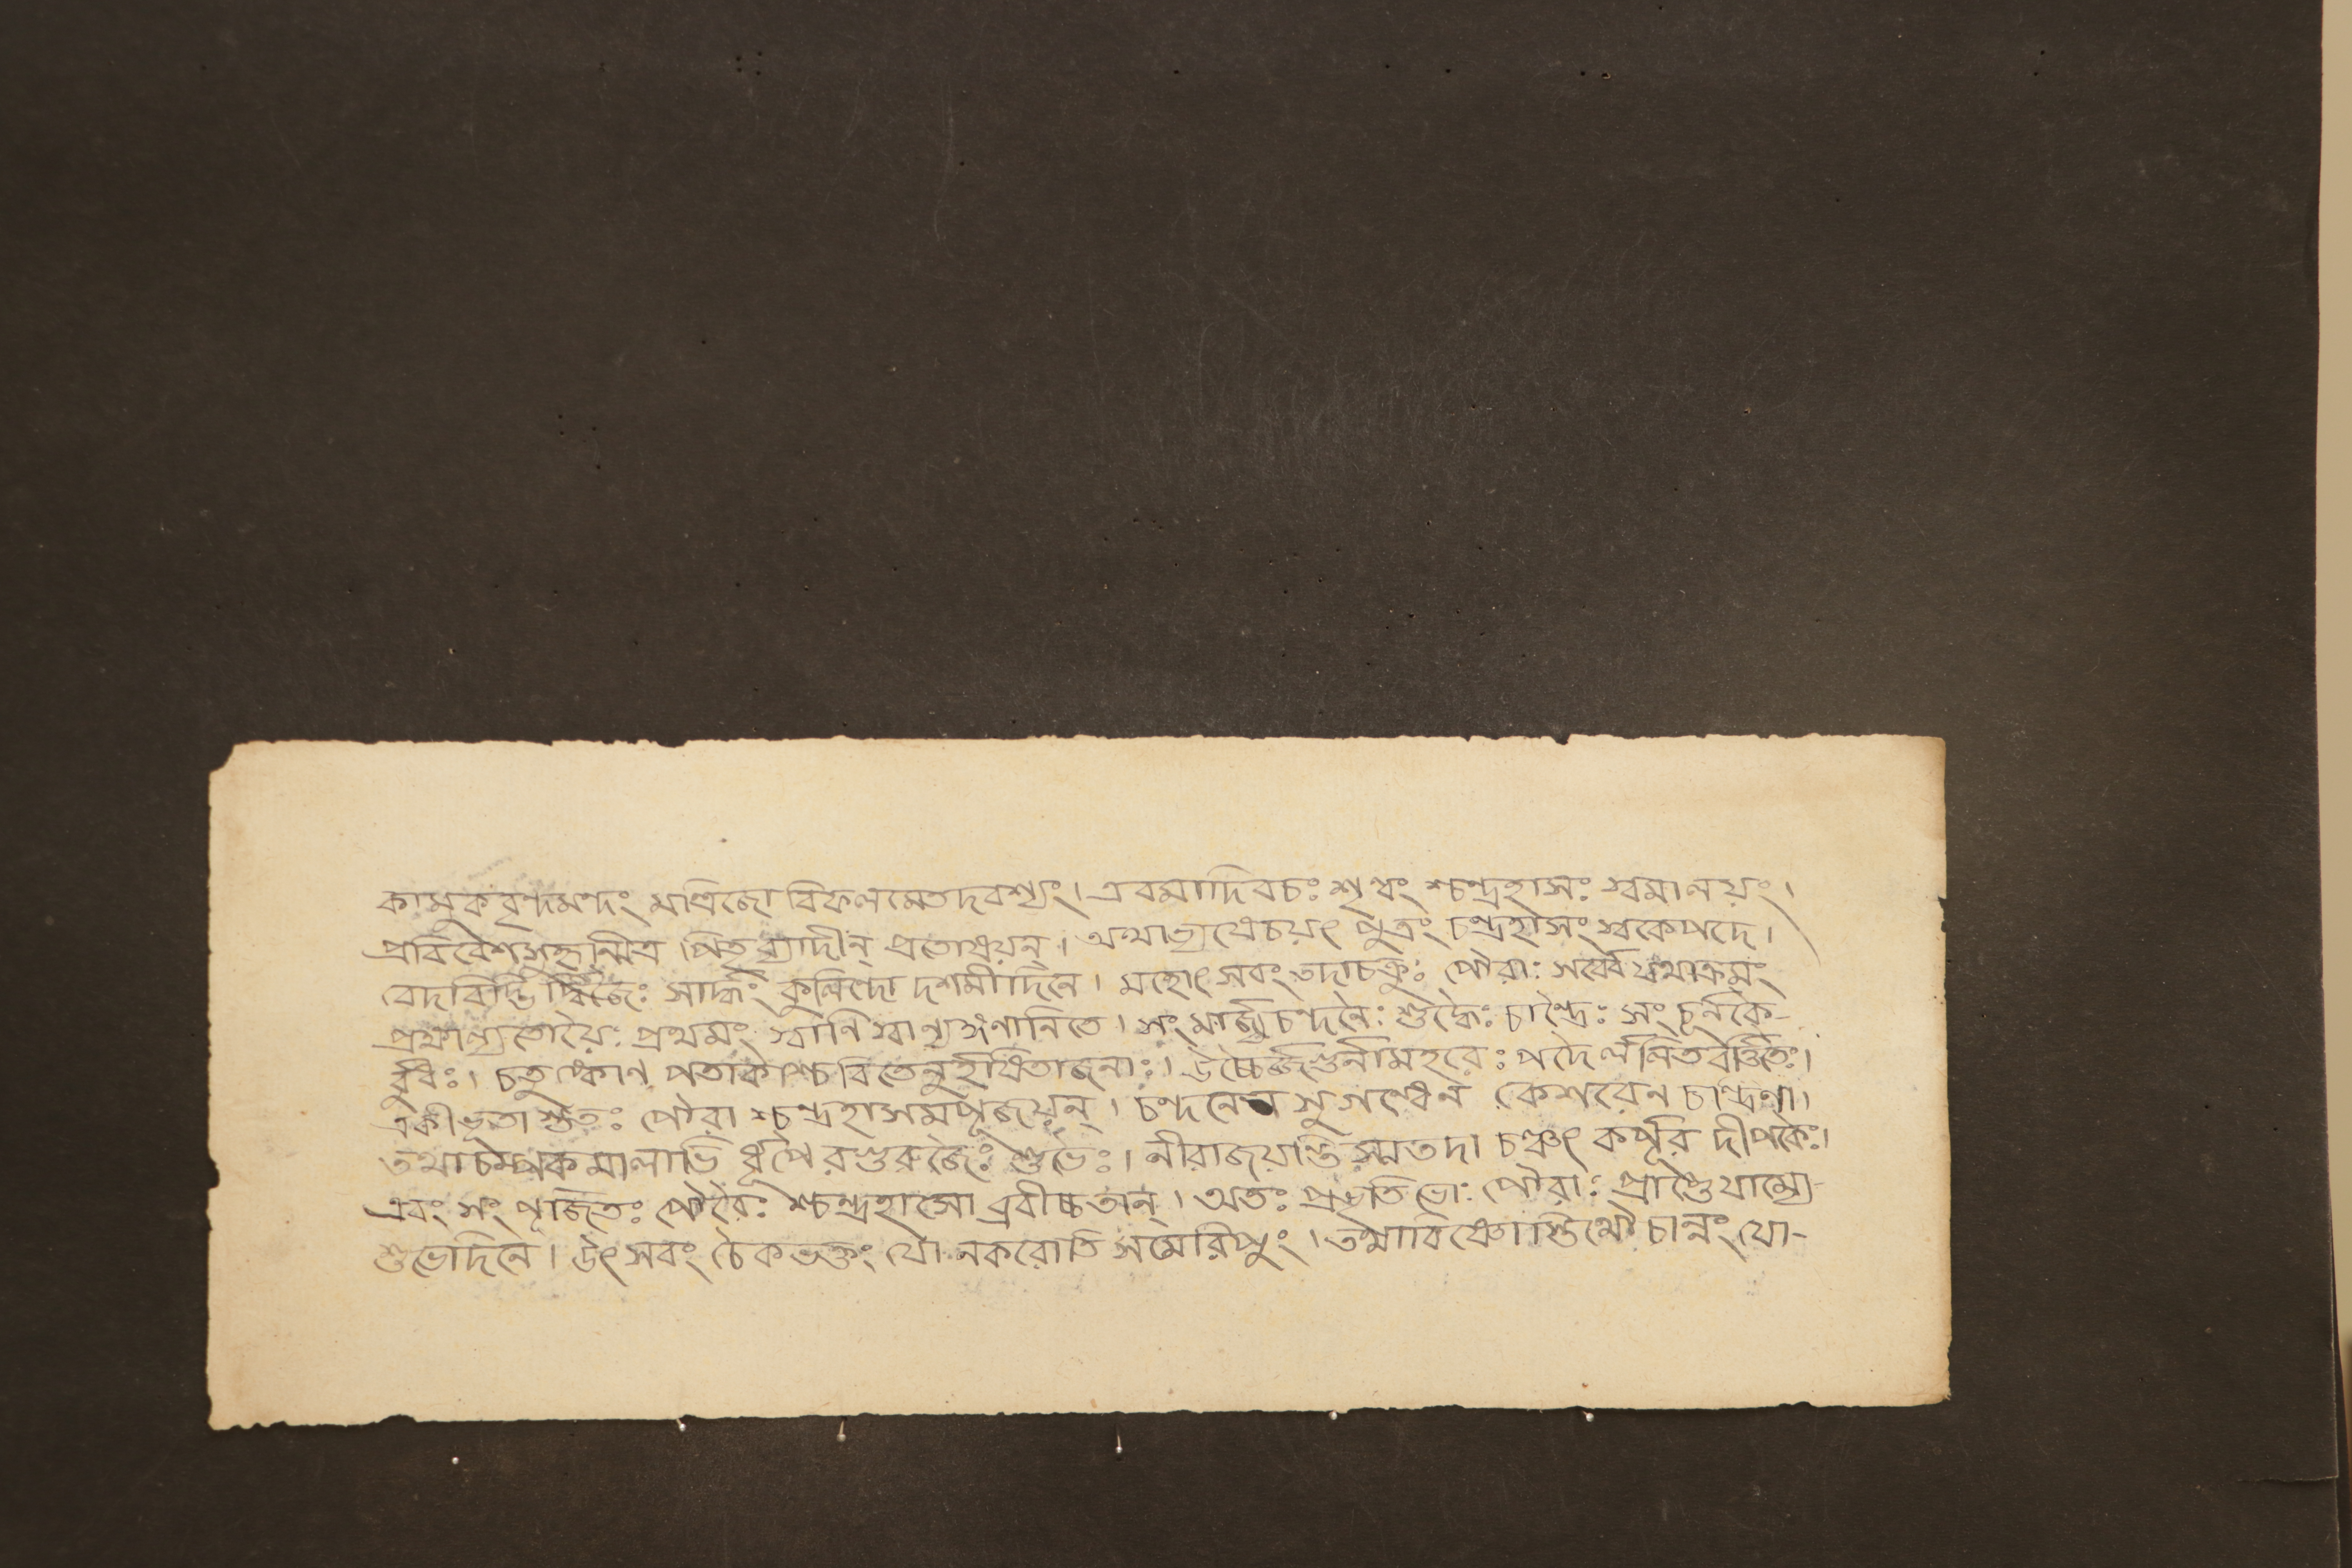 কামুকবৃন্দমন্দং মাত্রিজো বিফলমেতদবশ্যং। এবমাদিবচঃ শৃণ্বং শ্চন্দ্রহাসঃ স্বমালয়ং।
প্রবিবেশসহৃন্মিত্র পিতৃব্যাদীন্ প্রতোষয়ন্। অথাভ্যষেচয়ৎ পুত্রং চন্দ্রহাসং স্বকেপদে।
বেদবিদ্ভি র্দ্বিজৈঃ সার্দ্ধং কুলিন্দো দশমীদিনে। মহোৎসবং তদাচক্রুঃ পৌরাঃ সর্ব্বে যথাক্রমং
প্রক্ষাল্যতোয়ৈঃ প্রথমং স্বানি স্বান্যঙ্গণানিতে। সংমার্জ্য চন্দনৈঃ শুদ্ধৈঃ চান্দ্রৈঃ সংচূর্নকৈ-
র্বুধঃ। চতুষ্কোণ পতাকাশ্চ বিতেনুর্হর্ষিতাজনাঃ। উচ্চৈর্জগুর্নামহরেঃ পদৈর্ললিতবর্ত্তিতৈঃ।
একীভূতা স্ততঃ পৌরা শ্চন্দ্রহাসমপূজয়ন্। চন্দনেন সুগন্ধেন কেশরেন চান্দ্রিণা।
তথাচম্পকমালাভি র্ধূপৈরগুরুজৈঃ শুভৈঃ। নীরাজয়ন্তিস্মতদা চঞ্চৎ কর্পূর দীপকৈঃ।
এবং সং পূজিতঃ পৌরৈঃ শ্চন্দ্রহাসো ব্রবীচ্চতান্। অতঃ প্রভৃতি ভোঃ পৌরাঃ প্রাপ্তৈযাম্যে-
শুভেদিনে। উৎসবং চৈকভক্তং যো নকরোতি সমেরিপুং। তথাবিষ্ণোস্তিথৌ চান্নং যো-